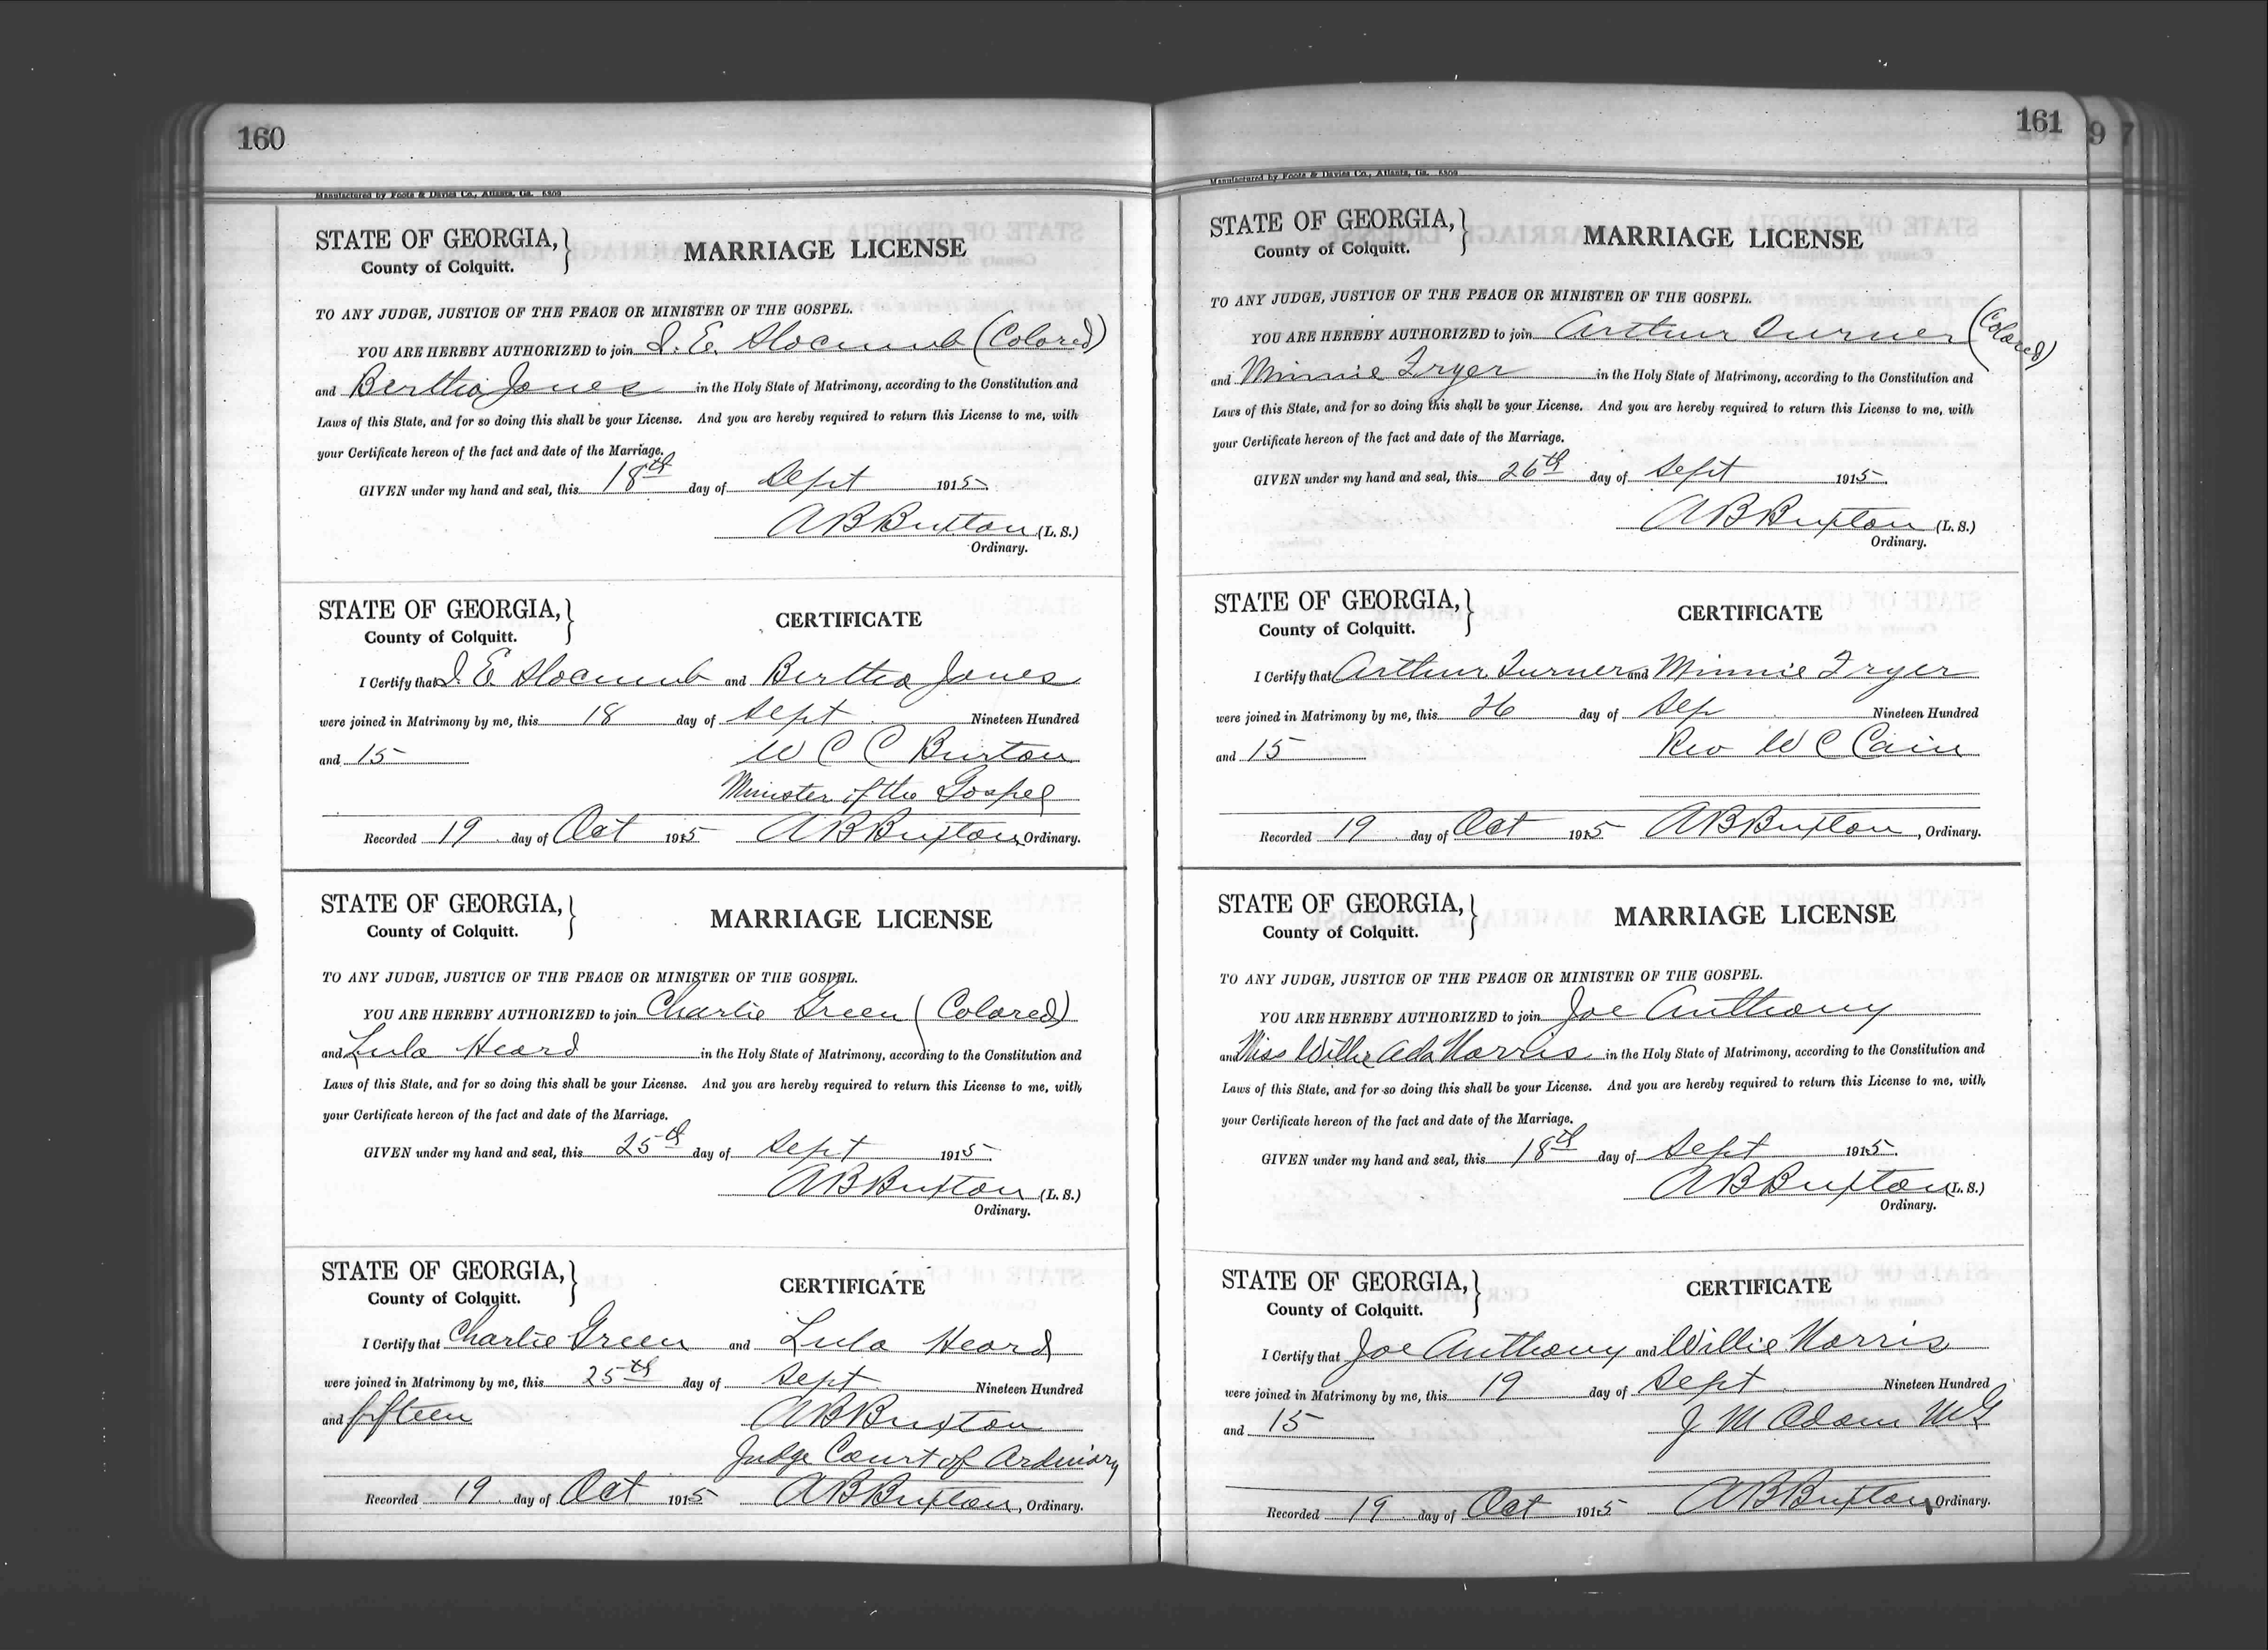 160
Manufactured by Foote & Davies Co., Atlanta, Ga. 6309
STATE OF GEORGIA, MARRIAGE LICENSE
County of Colquitt.
TO ANY JUDGE, JUSTICE OF THE PEACE OR MINISTER OF THE GOSPEL.
YOU ARE HEREBY AUTHORIZED to join I. E. Slocumb (Colored)
and Bertha Jones in the Holy State of Matrimony, according to the Constitution and
Laws of this State, and for so doing this shall be your License. And you are hereby required to return this License to me, with
your Certificate hereon of the fact and date of the Marriage.
GIVEN under my hand and seal, this 18th day of Sept 1915.
A B Buxton (L. S.)
Ordinary.
STATE OF GEORGIA, CERTIFICATE
County of Colquitt.
I Certify that I E Slocumb and Bertha Jones
were joined in Matrimony by me, this 18 day of Sept Nineteen Hundred
and 15 W C C Burton
Minister of the Gospel
Recorded 19 day of Oct 1915 A B Buxton, Ordinary.
STATE OF GEORGIA, MARRIAGE LICENSE
County of Colquitt.
TO ANY JUDGE, JUSTICE OF THE PEACE OR MINISTER OF THE GOSPEL.
YOU ARE HEREBY AUTHORIZED to join Charlie Green (Colored)
and Lula Heard in the Holy State of Matrimony, according to the Constitution and
Laws of this State, and for so doing this shall be your License. And you are hereby required to return this License to me, with
your Certificate hereon of the fact and date of the Marriage.
GIVEN under my hand and seal, this 25th day of Sept 1915.
A B Buxton (L. S.)
Ordinary.
STATE OF GEORGIA, CERTIFICATE
County of Colquitt.
I Certify that Charlie Green and Lula Heard
were joined in Matrimony by me, this 25th day of Sept Nineteen Hundred
and fifteen A B Buxton
Judge Court of Ordinary
Recorded 19 day of Oct 1915 A B Buxton, Ordinary.
161
9 7
Manufactured by Foote & Davies Co., Atlanta, Ga. 6309
STATE OF GEORGIA, MARRIAGE LICENSE
County of Colquitt.
TO ANY JUDGE, JUSTICE OF THE PEACE OR MINISTER OF THE GOSPEL.
YOU ARE HEREBY AUTHORIZED to join Arthur Turner (Colored)
and Minnie Fryer in the Holy State of Matrimony, according to the Constitution and
Laws of this State, and for so doing this shall be your License. And you are hereby required to return this License to me, with
your Certificate hereon of the fact and date of the Marriage.
GIVEN under my hand and seal, this 26th day of Sept 1915.
A B Buxton (L. S.)
Ordinary.
STATE OF GEORGIA, CERTIFICATE
County of Colquitt.
I Certify that Arthur Turner and Minnie Fryer
were joined in Matrimony by me, this 26 day of Sep Nineteen Hundred
and 15 Rev W C Cain
Recorded 19 day of Oct 1915 A B Buxton, Ordinary.
STATE OF GEORGIA, MARRIAGE LICENSE
County of Colquitt.
TO ANY JUDGE, JUSTICE OF THE PEACE OR MINISTER OF THE GOSPEL.
YOU ARE HEREBY AUTHORIZED to join Joe Anthony
and Miss Willie Ada Norris in the Holy State of Matrimony, according to the Constitution and
Laws of this State, and for so doing this shall be your License. And you are hereby required to return this License to me, with
your Certificate hereon of the fact and date of the Marriage.
GIVEN under my hand and seal, this 18th day of Sept 1915.
A B Buxton (L. S.)
Ordinary.
STATE OF GEORGIA, CERTIFICATE
County of Colquitt.
I Certify that Joe Anthony and Willie Norris
were joined in Matrimony by me, this 19 day of Sept Nineteen Hundred
and 15 J M Adam M G
Recorded 19 day of Oct 1915 A B Buxton, Ordinary.